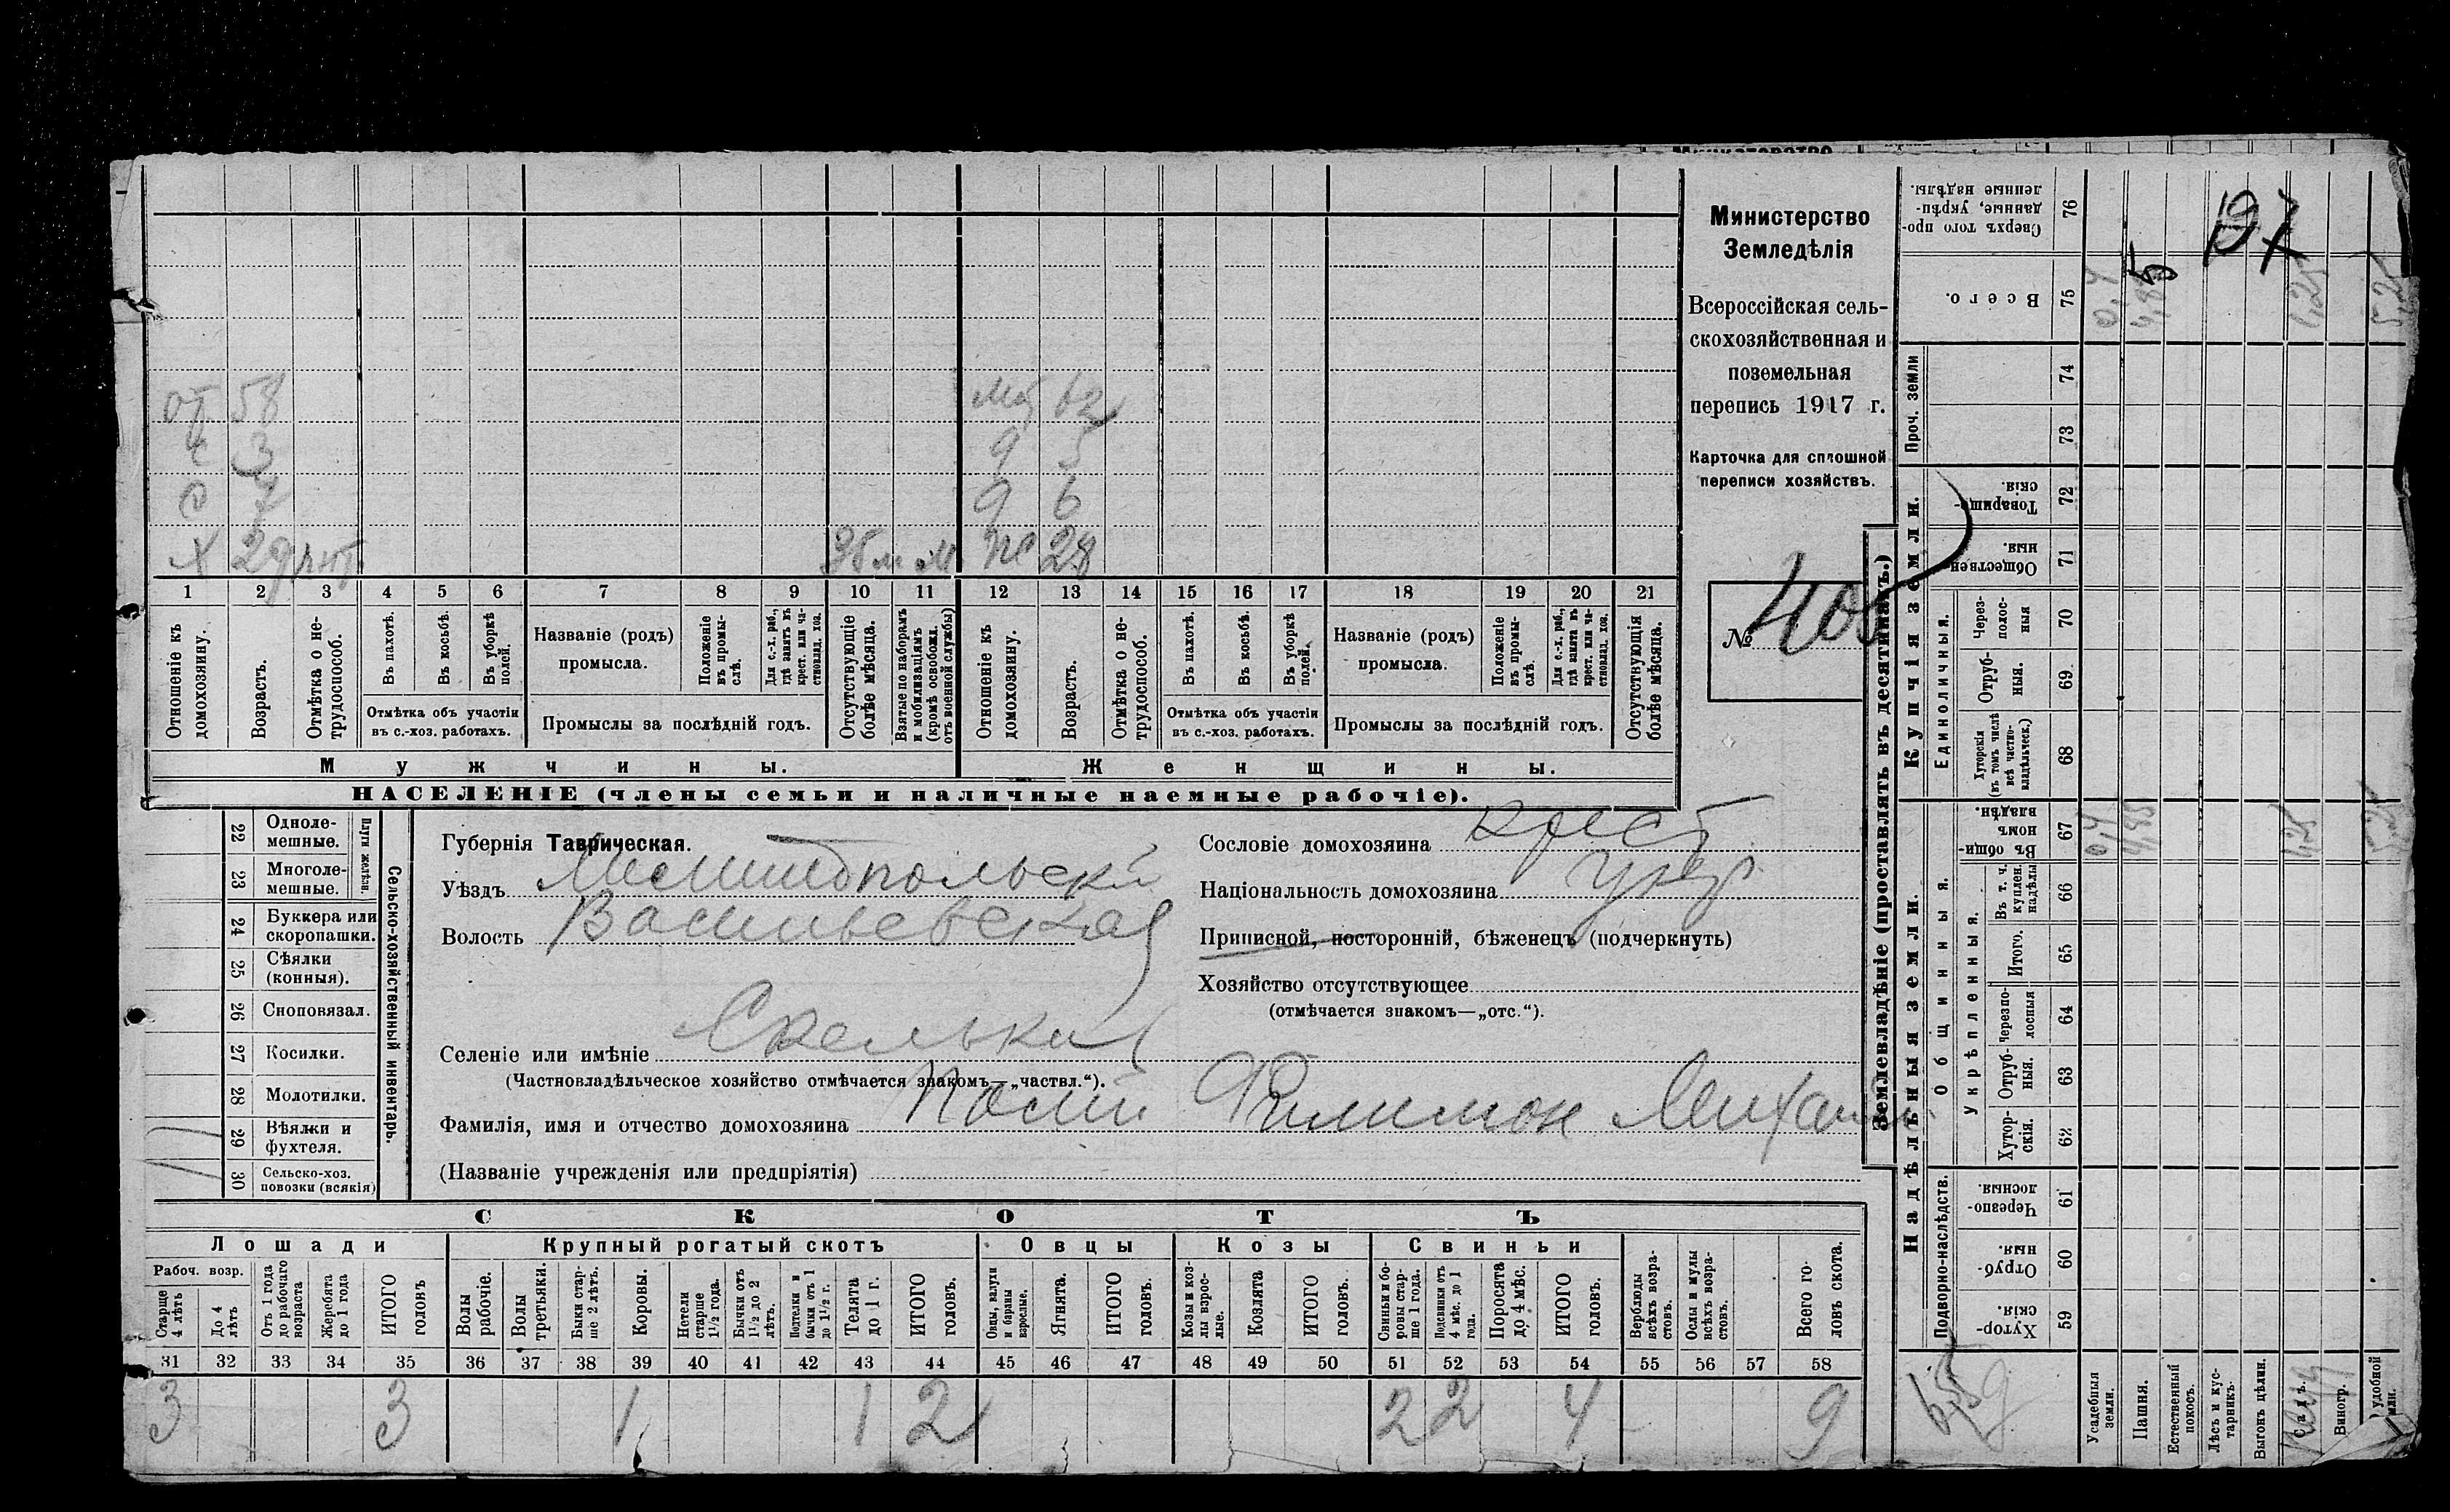 Министерство
Земледѣлія
Всероссійская сель-
скохозяйственная и
поземельная
перепись 1917 г.
Карточка для сплошной
переписи хозяйствъ.
№ 408
197
от 58
с 3
с 7
х 29
м 62
д 5
д 6
ж 28
1 2 3 4 5 6 7 8 9 10 11 12 13 14 15 16 17 18 19 20 21
Отношеніе къ домохозяину.
Возрастъ.
Отмѣтка о не-трудоспособ.
Въ пахотѣ.
Въ косьбѣ.
Въ уборкѣ полей.
Отмѣтка объ участіи
въ с.-хоз. работахъ.
Названіе (родъ)
промысла.
Положеніе въ промы-слѣ.
Для с.-х. раб., гдѣ занятъ въ крест. или ча-стновлад. хоз.
Промыслы за послѣдній годъ.
Отсутствующіе болѣе мѣсяца.
Взятые по наборамъ и мобилизаціямъ (кромѣ освобожд. отъ военной службы)
Отношеніе къ домохозяину.
Возрастъ.
Отмѣтка о не-трудоспособ.
Въ пахотѣ.
Въ косьбѣ.
Въ уборкѣ полей.
Отмѣтка объ участіи
въ с.-хоз. работахъ.
Названіе (родъ)
промысла.
Положеніе въ промы-слѣ.
Для с.-х. раб., гдѣ занята въ крест. или ча-стновлад. хоз.
Промыслы за послѣдній годъ.
Отсутствующія болѣе мѣсяца.
Мужчины.
Женщины.
НАСЕЛЕНІЕ (члены семьи и наличные наемные рабочіе).
Сельско-хозяйственный инвентарь.
Плуги желѣзн.
22 Одноле-мешные.
23 Многоле-мешные.
24 Буккера или скоропашки.
25 Сѣялки (конныя).
26 Сноповязал.
27 Косилки.
28 Молотилки.
29 Вѣялки и фухтеля. 1
30 Сельско-хоз. повозки (всякія) 1
Губернія Таврическая.
Уѣздъ Мелитопольскій
Волость Васильевская
Селеніе или имѣніе Скельки
(Частновладѣльческое хозяйство отмѣчается знакомъ—„частвл.“).
Фамилія, имя и отчество домохозяина Филимон Михаил.
(Названіе учрежденія или предпріятія)
Сословіе домохозяина крест
Національность домохозяина укр.
Приписной, посторонній, бѣженецъ (подчеркнуть)
Хозяйство отсутствующее
(отмѣчается знакомъ—„отс.“).
СКОТЪ
Лошади
Крупный рогатый скотъ
Овцы
Козы
Свиньи
Рабоч. возр.
Старше 4 лѣтъ
До 4 лѣтъ
Отъ 1 года до рабочаго возраста
Жеребята до 1 года
ИТОГО головъ
Волы рабочіе.
Волы третьяки.
Быки стар-ше 2 лѣтъ.
Коровы.
Нетели старше 1½ года.
Бычки отъ 1½ до 2 лѣтъ.
Подтелки и бычки отъ 1 до 1½ г.
Телята до 1 г.
ИТОГО головъ.
Овцы, валухи и бараны взрослые.
Ягнята.
ИТОГО головъ.
Козы и коз-лы взрос-лые.
Козлята
ИТОГО головъ.
Свиньи и бо-ровы стар-ше 1 года.
Подсвинки отъ 4 мѣс. до 1 года.
Поросята до 4 мѣс.
ИТОГО головъ.
Верблюды всѣхъ возра-стовъ.
Ослы и мулы всѣхъ возра-стовъ.
Всего го-ловъ скота.
31 32 33 34 35 36 37 38 39 40 41 42 43 44 45 46 47 48 49 50 51 52 53 54 55 56 57 58
3 3 1 1 2 2 2 4 9
Землевладѣніе (проставлять въ десятинахъ.)
Надѣльныя земли.
Купчія земли.
Проч. земли
Подворно-наслѣдств.
Общинныя.
Укрѣпленныя.
Единоличныя.
76 Сверхъ того про-данные, укрѣп-ленные надѣлы.
75 Всего. 0,4 4,85 1,25
74
73
72 Товарище-скія.
71 Обществен-ныя.
70 Через-полос-ныя
69 Отруб-ныя.
68 Хуторскія (въ томъ числѣ всѣ частно-владѣльческ.)
67 Въ общин-номъ владѣн. 0,4 4,85
66 Въ т. ч. куплен. надѣлы
65 Итого.
64 Черезпо-лосныя
63 Отруб-ныя.
62 Хутор-скія.
61 Черезпо-лосныя.
60 Отруб-ныя.
59 Хутор-скія.
Усадебныя земли.
Пашня.
Естественный покосъ.
Лѣсъ и кус-тарникъ.
Выгонъ цѣлин.
Садъ.
Виногр.
удобной